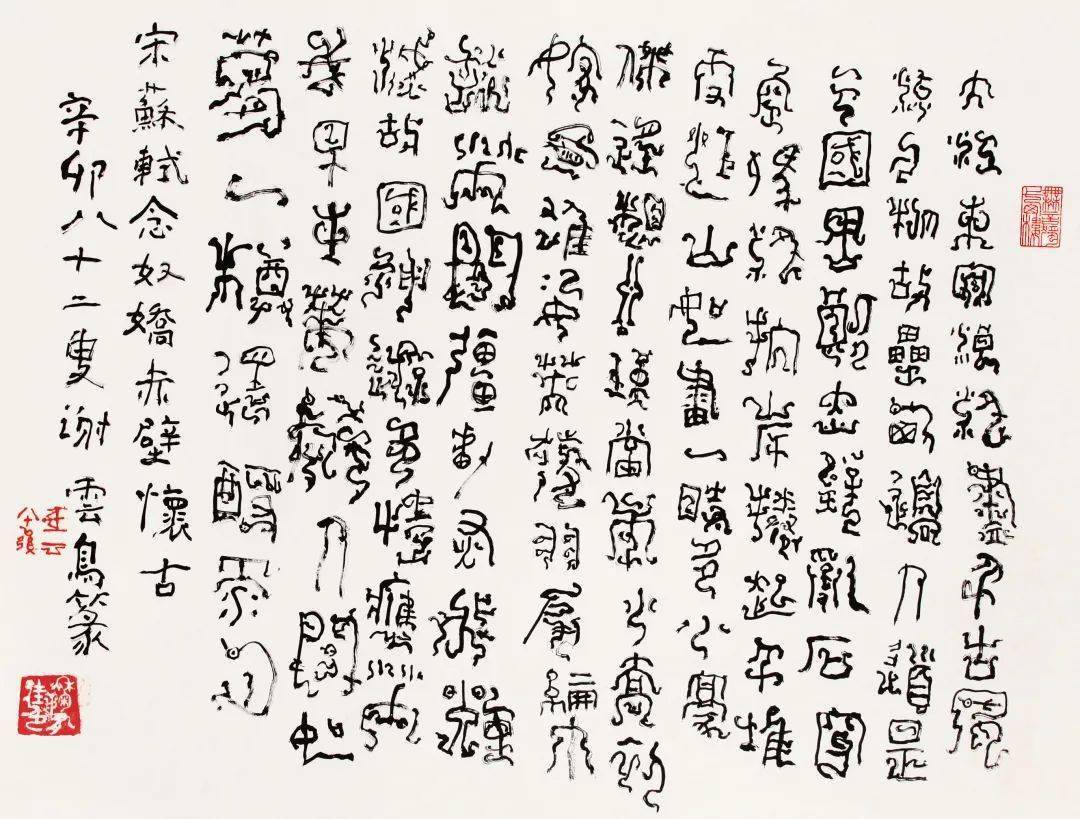 大江東去浪淘盡千古風
流人物故壘西邊人道是
三國周郎赤壁亂石穿
空驚濤拍岸捲起千堆
雪江山如畫一時多少豪
傑遙想公瑾當年小喬初
嫁了雄姿英發羽扇綸巾
談笑間強虜灰飛煙
滅故國神遊多情應笑
我早生華髮人間如
夢一尊還酹江月
宋蘇軾念奴嬌赤壁懷古
辛卯八十二叟謝雲鳥篆